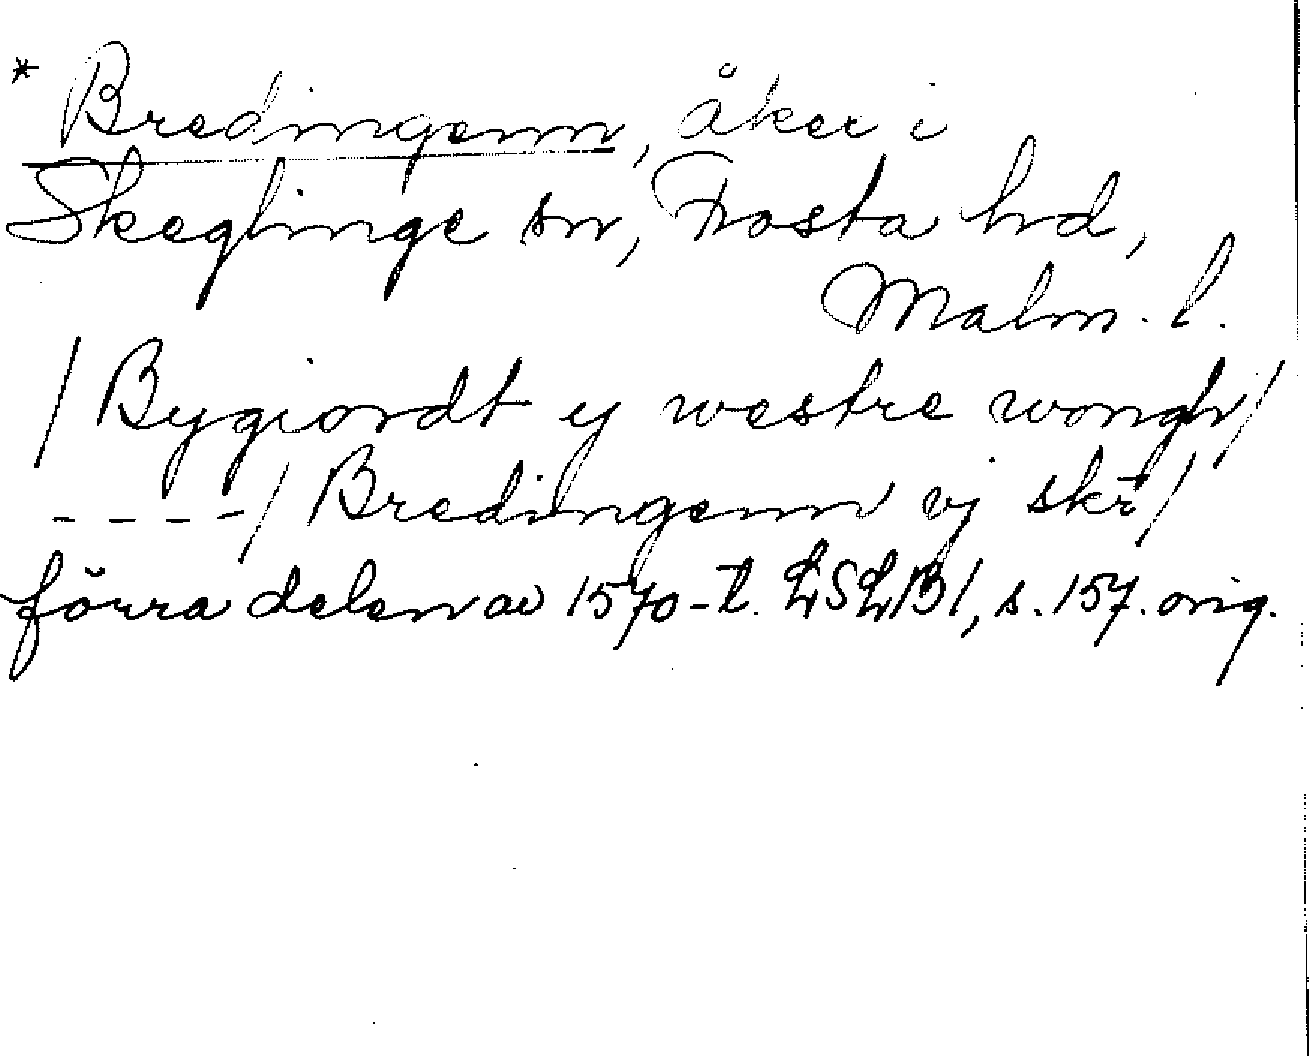 * Bredingenn, åker i
Skeglinge sn, Frosta hd,
Malm. l.
/ Bygiordt ÿ westre wongh /
- - - - / Bredingenn vj skr /
förra delen av 1570-t. LSLB1, s. 157. orig.